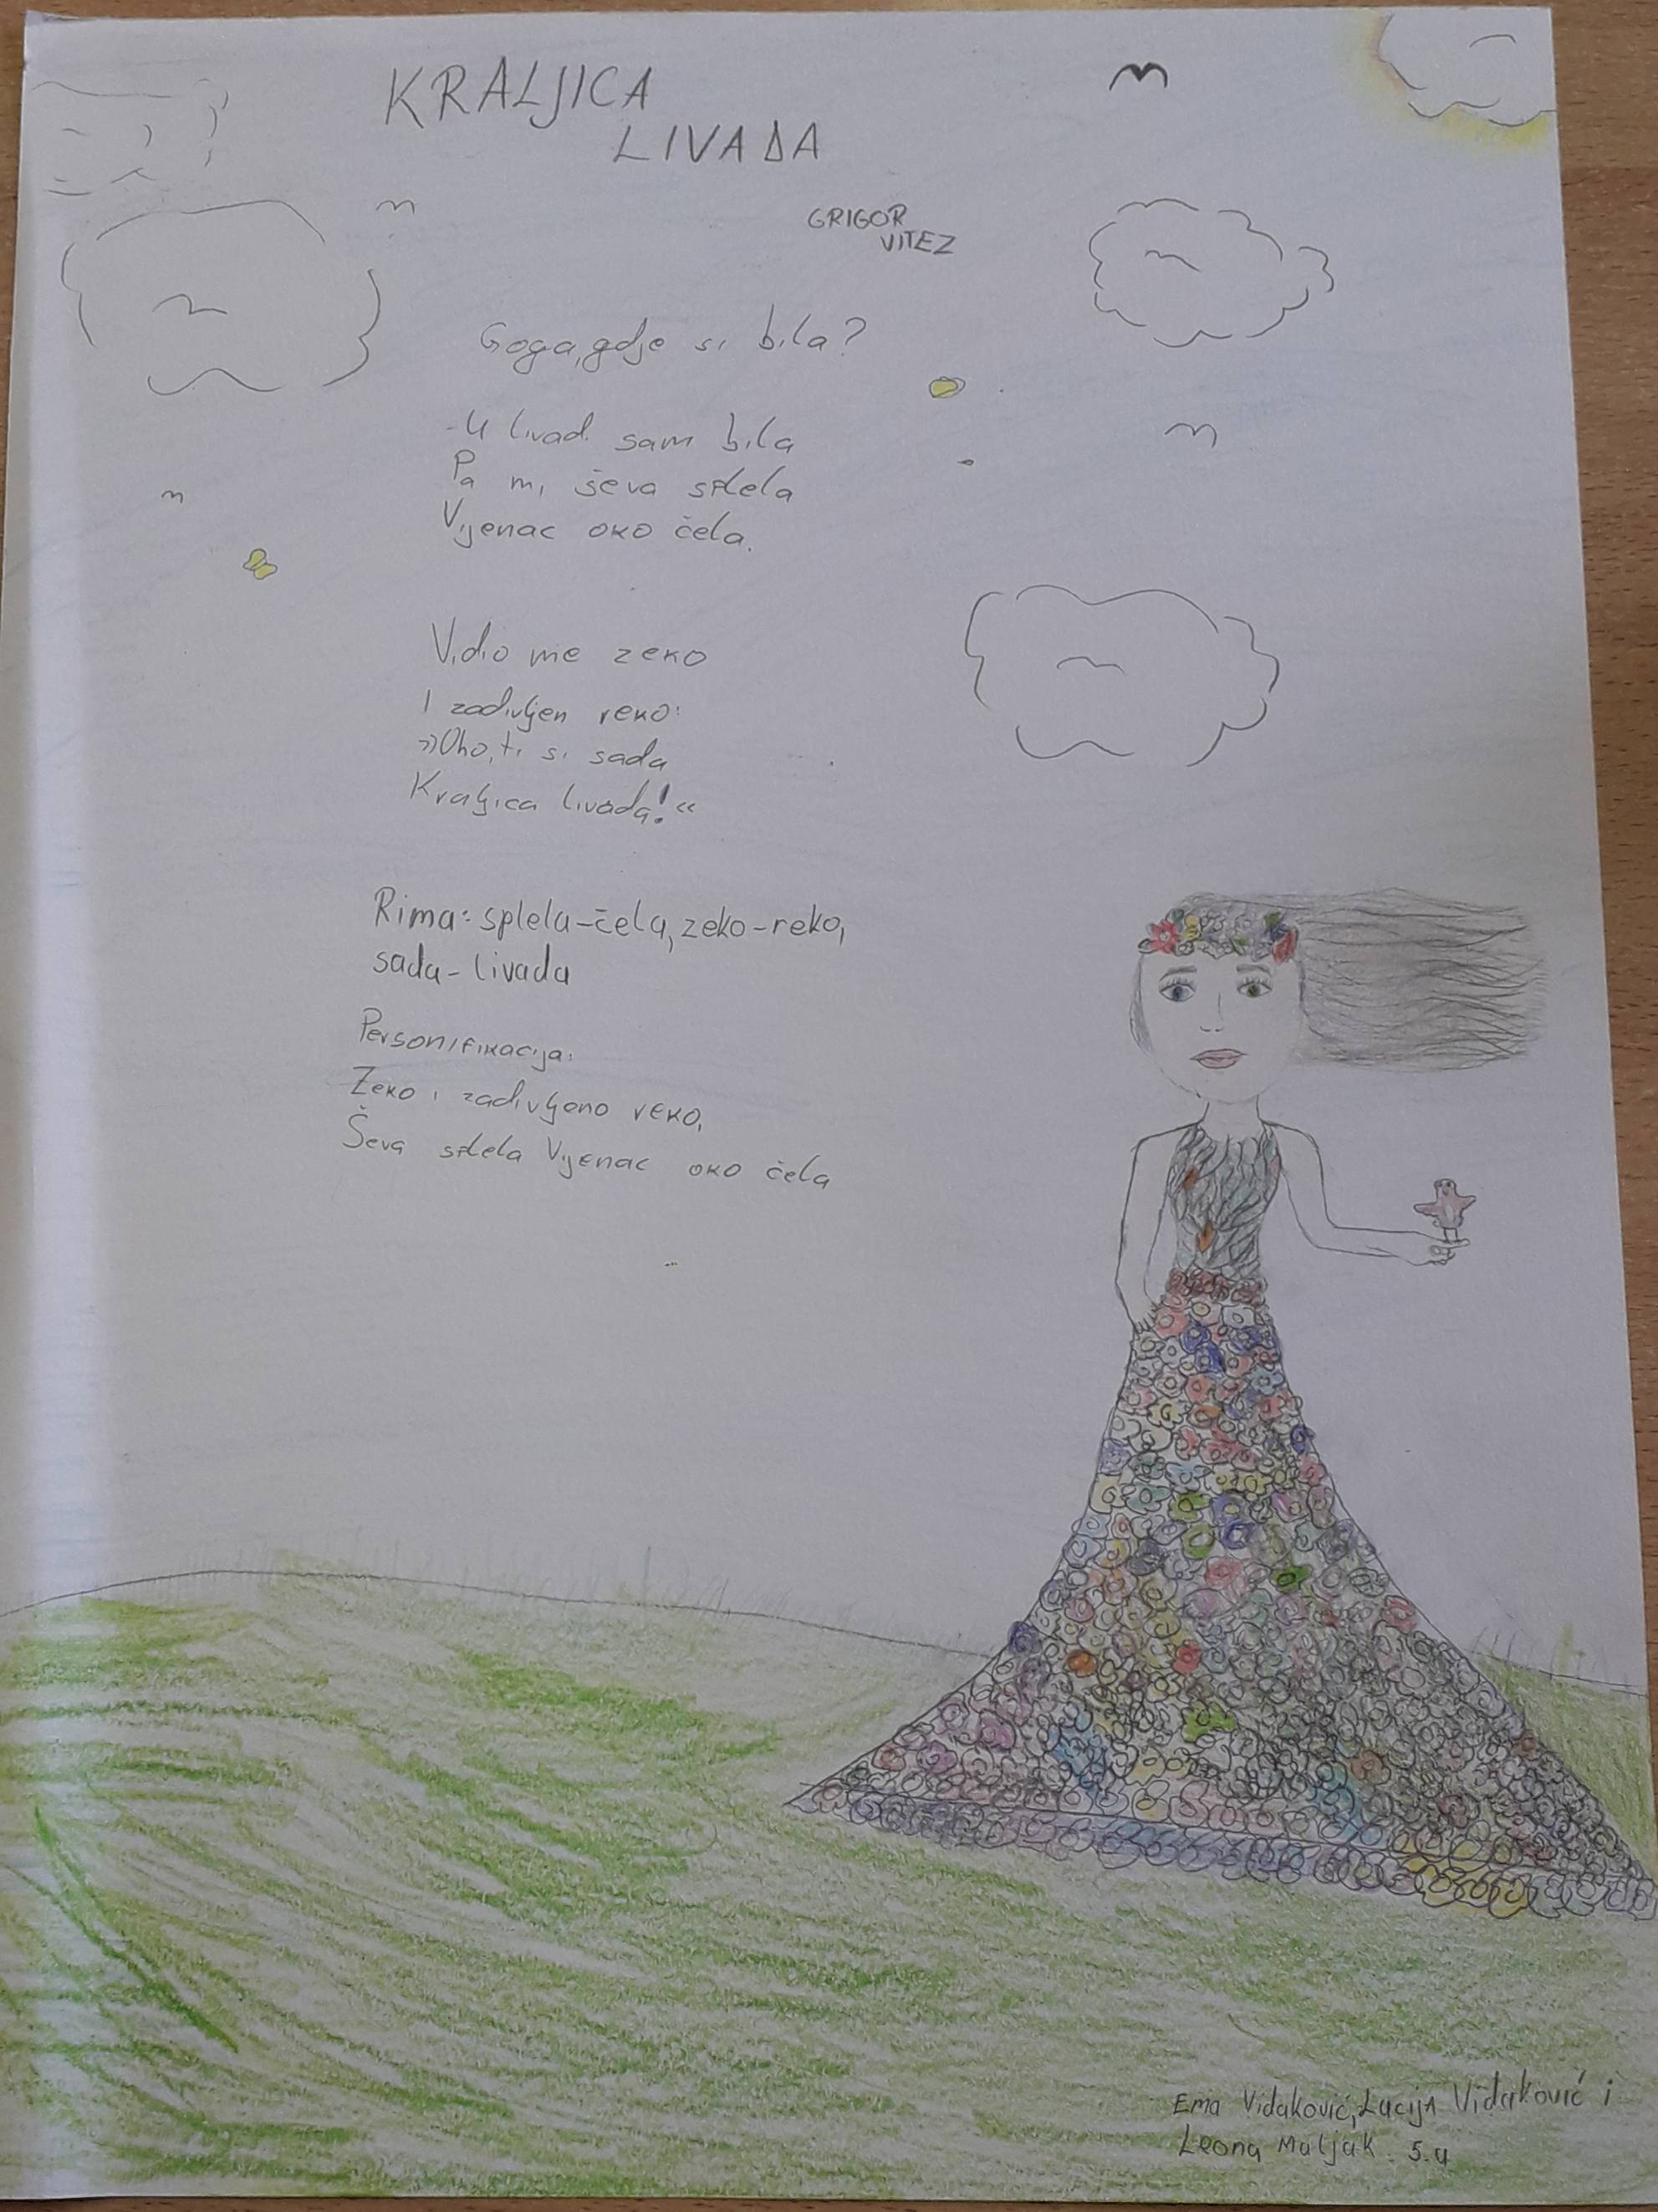 KRALJICA
LIVADA
GRIGOR
VITEZ
Goga, gdje si bila?
-U livadi sam bila
Pa mi ševa splela
Vijenac oko čela.
Vidio me zeko
I zadivljen reko:
»Oho, ti si sada
Kraljica livada!«
Rima: splela-čela, zeko-reko,
sada-livada
Personifikacija:
Zeko i zadivljeno reko,
Ševa splela Vijenac oko čela
Ema Vidaković, Lucija Vidaković i
Leona Maljak 5.a